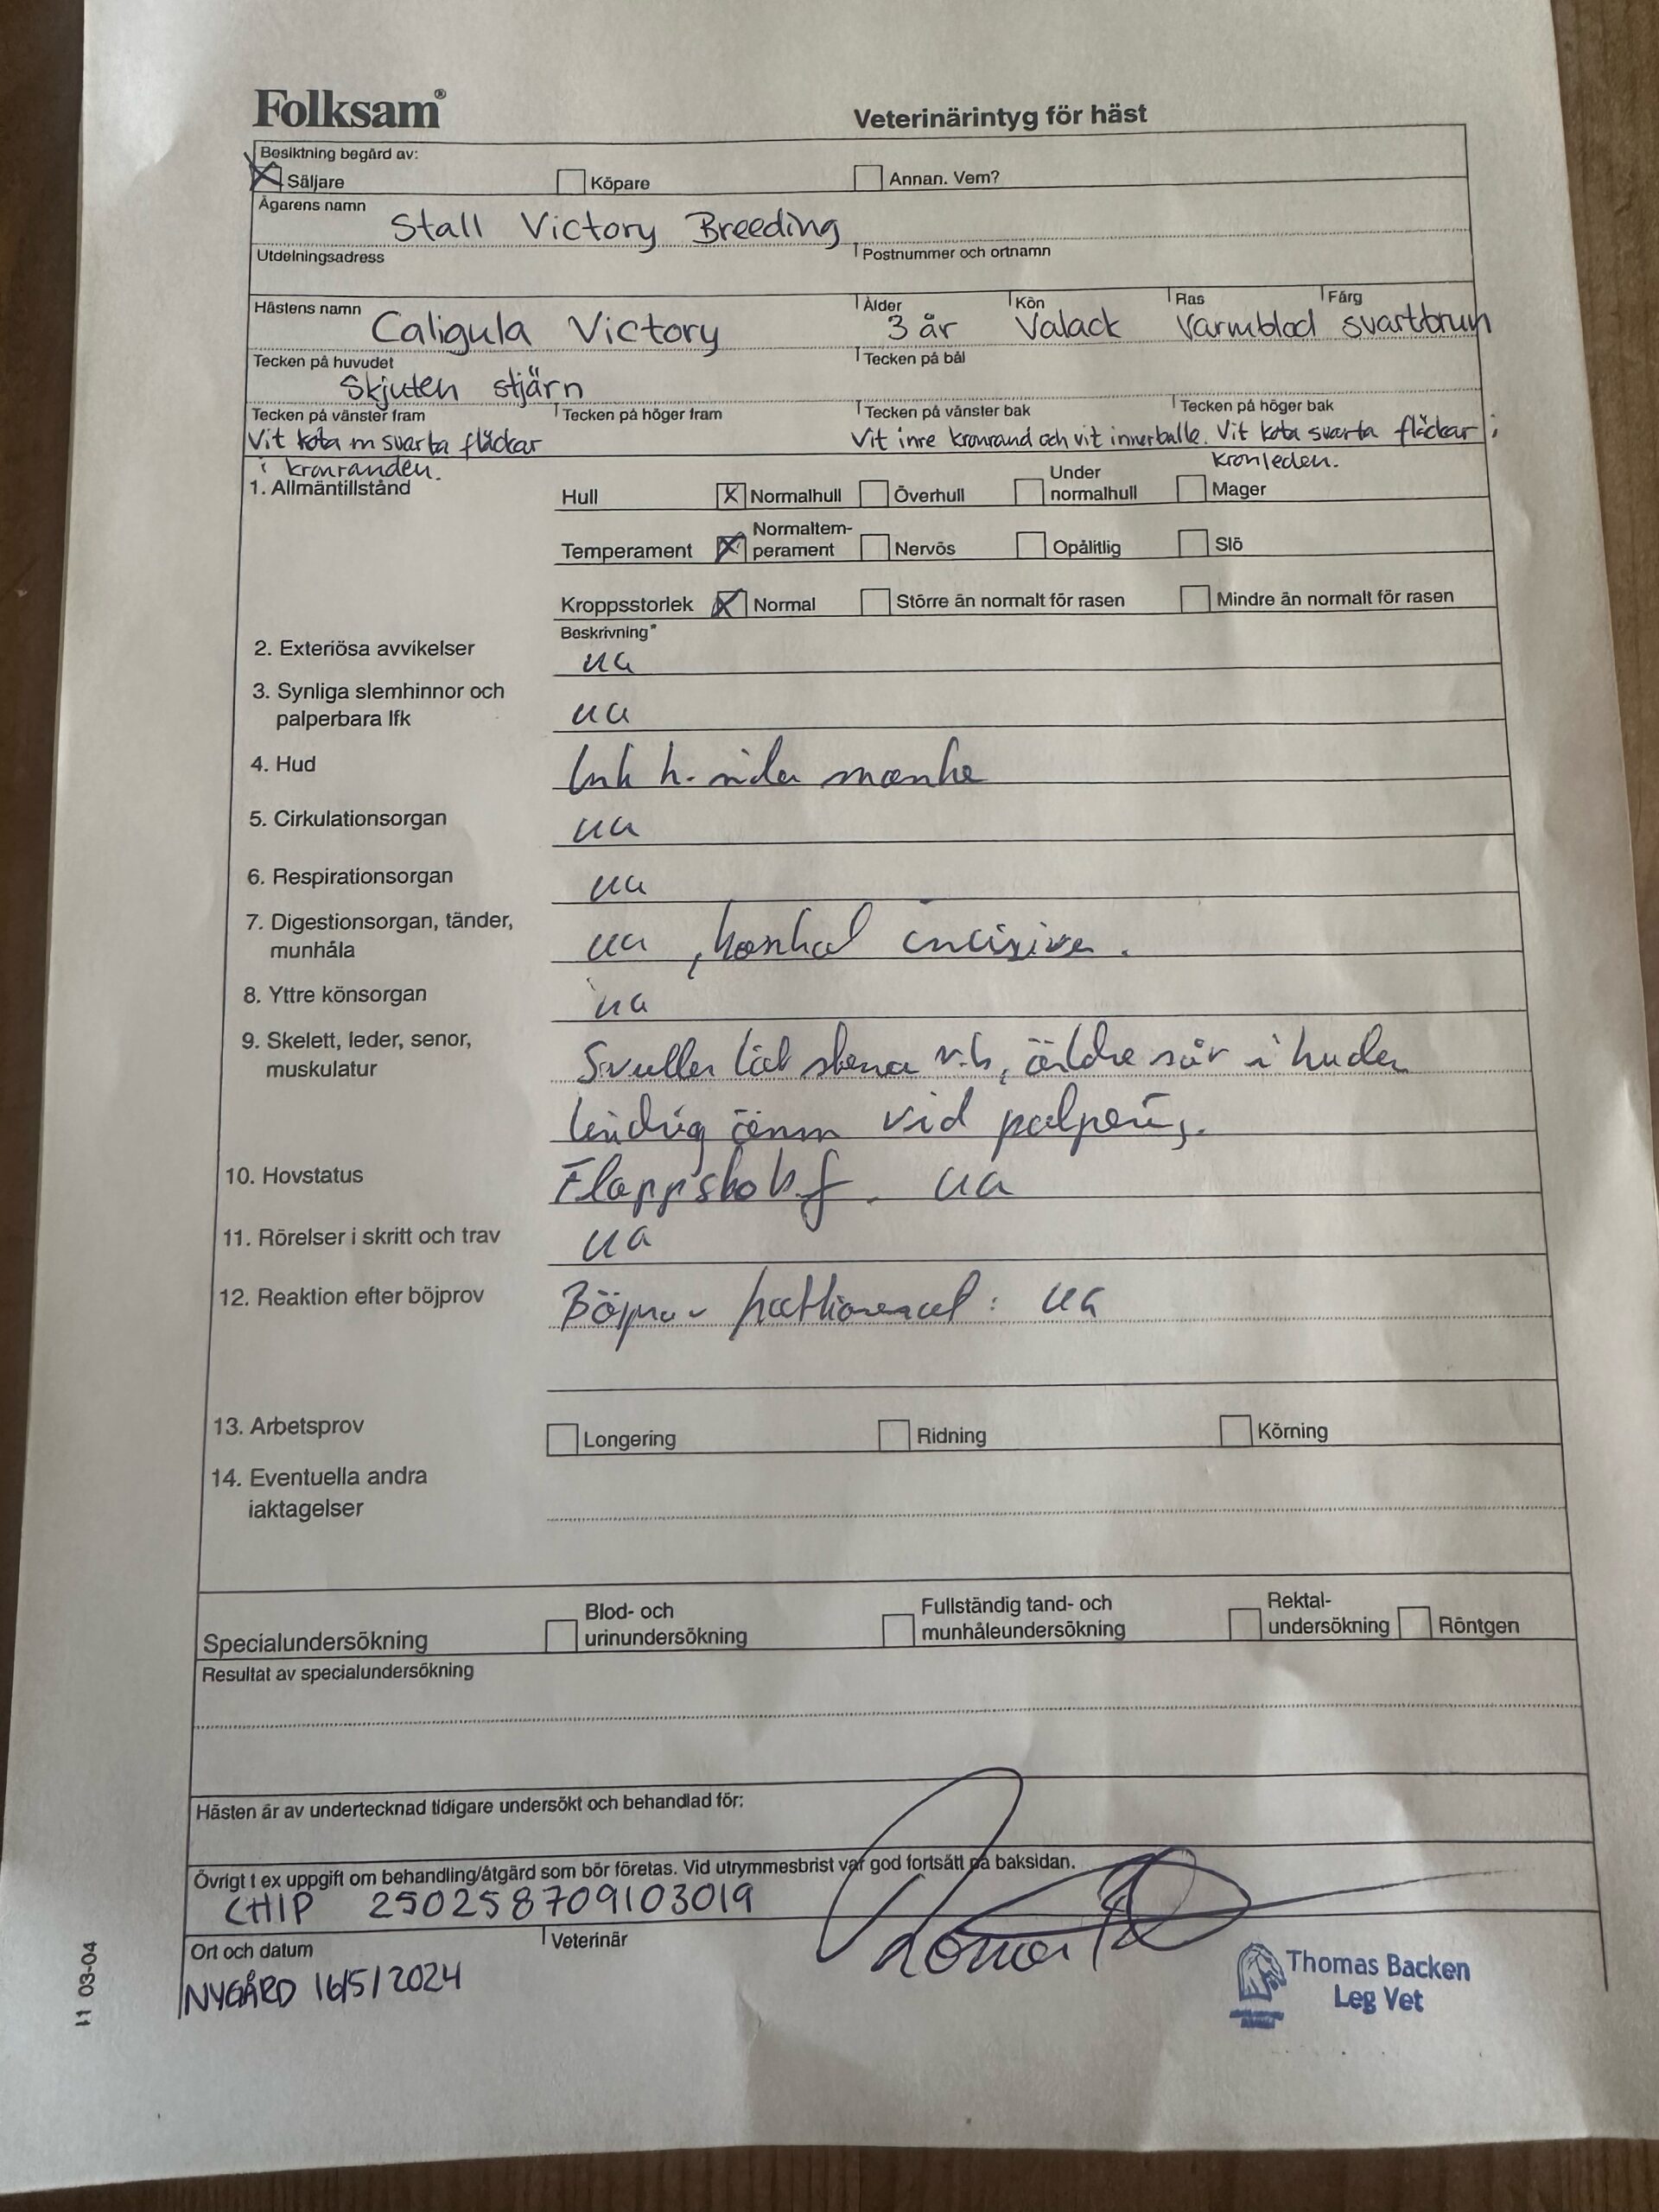 Folksam®
Veterinärintyg för häst
Besiktning begärd av:
Säljare Köpare Annan. Vem?
Ägarens namn Stall Victory Breeding
Utdelningsadress Postnummer och ortnamn
Hästens namn Ålder Kön Ras Färg
Caligula Victory 3 år Valack Varmblod svartbrun
Tecken på huvudet Tecken på bål
Skjuten stjärn
Tecken på vänster fram Tecken på höger fram Tecken på vänster bak Tecken på höger bak
Vit kota m svarta fläckar Vit inre kronrand och vit innerballe. Vit kota svarta fläckar i
i kronranden. kronleden.
1. Allmäntillstånd Hull X Normalhull Överhull Under normalhull Mager
Temperament X Normaltem-perament Nervös Opålitlig Slö
Kroppsstorlek X Normal Större än normalt för rasen Mindre än normalt för rasen
Beskrivning*
2. Exteriösa avvikelser ua
3. Synliga slemhinnor och
palperbara lfk ua
4. Hud h. sida
5. Cirkulationsorgan ua
6. Respirationsorgan ua
7. Digestionsorgan, tänder,
munhåla ua
8. Yttre könsorgan ua
9. Skelett, leder, senor,
muskulatur skena v.b, äldre sår i huden
lindrig öm vid
10. Hovstatus ua
11. Rörelser i skritt och trav ua
12. Reaktion efter böjprov Böjprov : ua
13. Arbetsprov Longering Ridning Körning
14. Eventuella andra
iaktagelser
Specialundersökning Blod- och urinundersökning Fullständig tand- och munhåleundersökning Rektal-undersökning Röntgen
Resultat av specialundersökning
Hästen är av undertecknad tidigare undersökt och behandlad för:
Övrigt t ex uppgift om behandling/åtgärd som bör företas. Vid utrymmesbrist var god fortsätt på baksidan.
CHIP 250258709103019
Ort och datum Veterinär
NYGÅRD 16/5/2024
Thomas Backen
Leg Vet
11 03-04